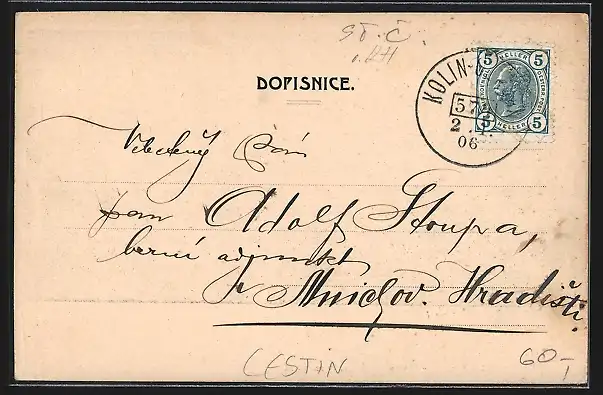 DOPISNICE.
KOLIN-
57
2
06
5 HELLER 5
5 HELLER 5
Veleděný Pán
pan Adolf Stoupa,
berní adjunkt
v Mnichov. Hradišti.
ČESTIN
60,-